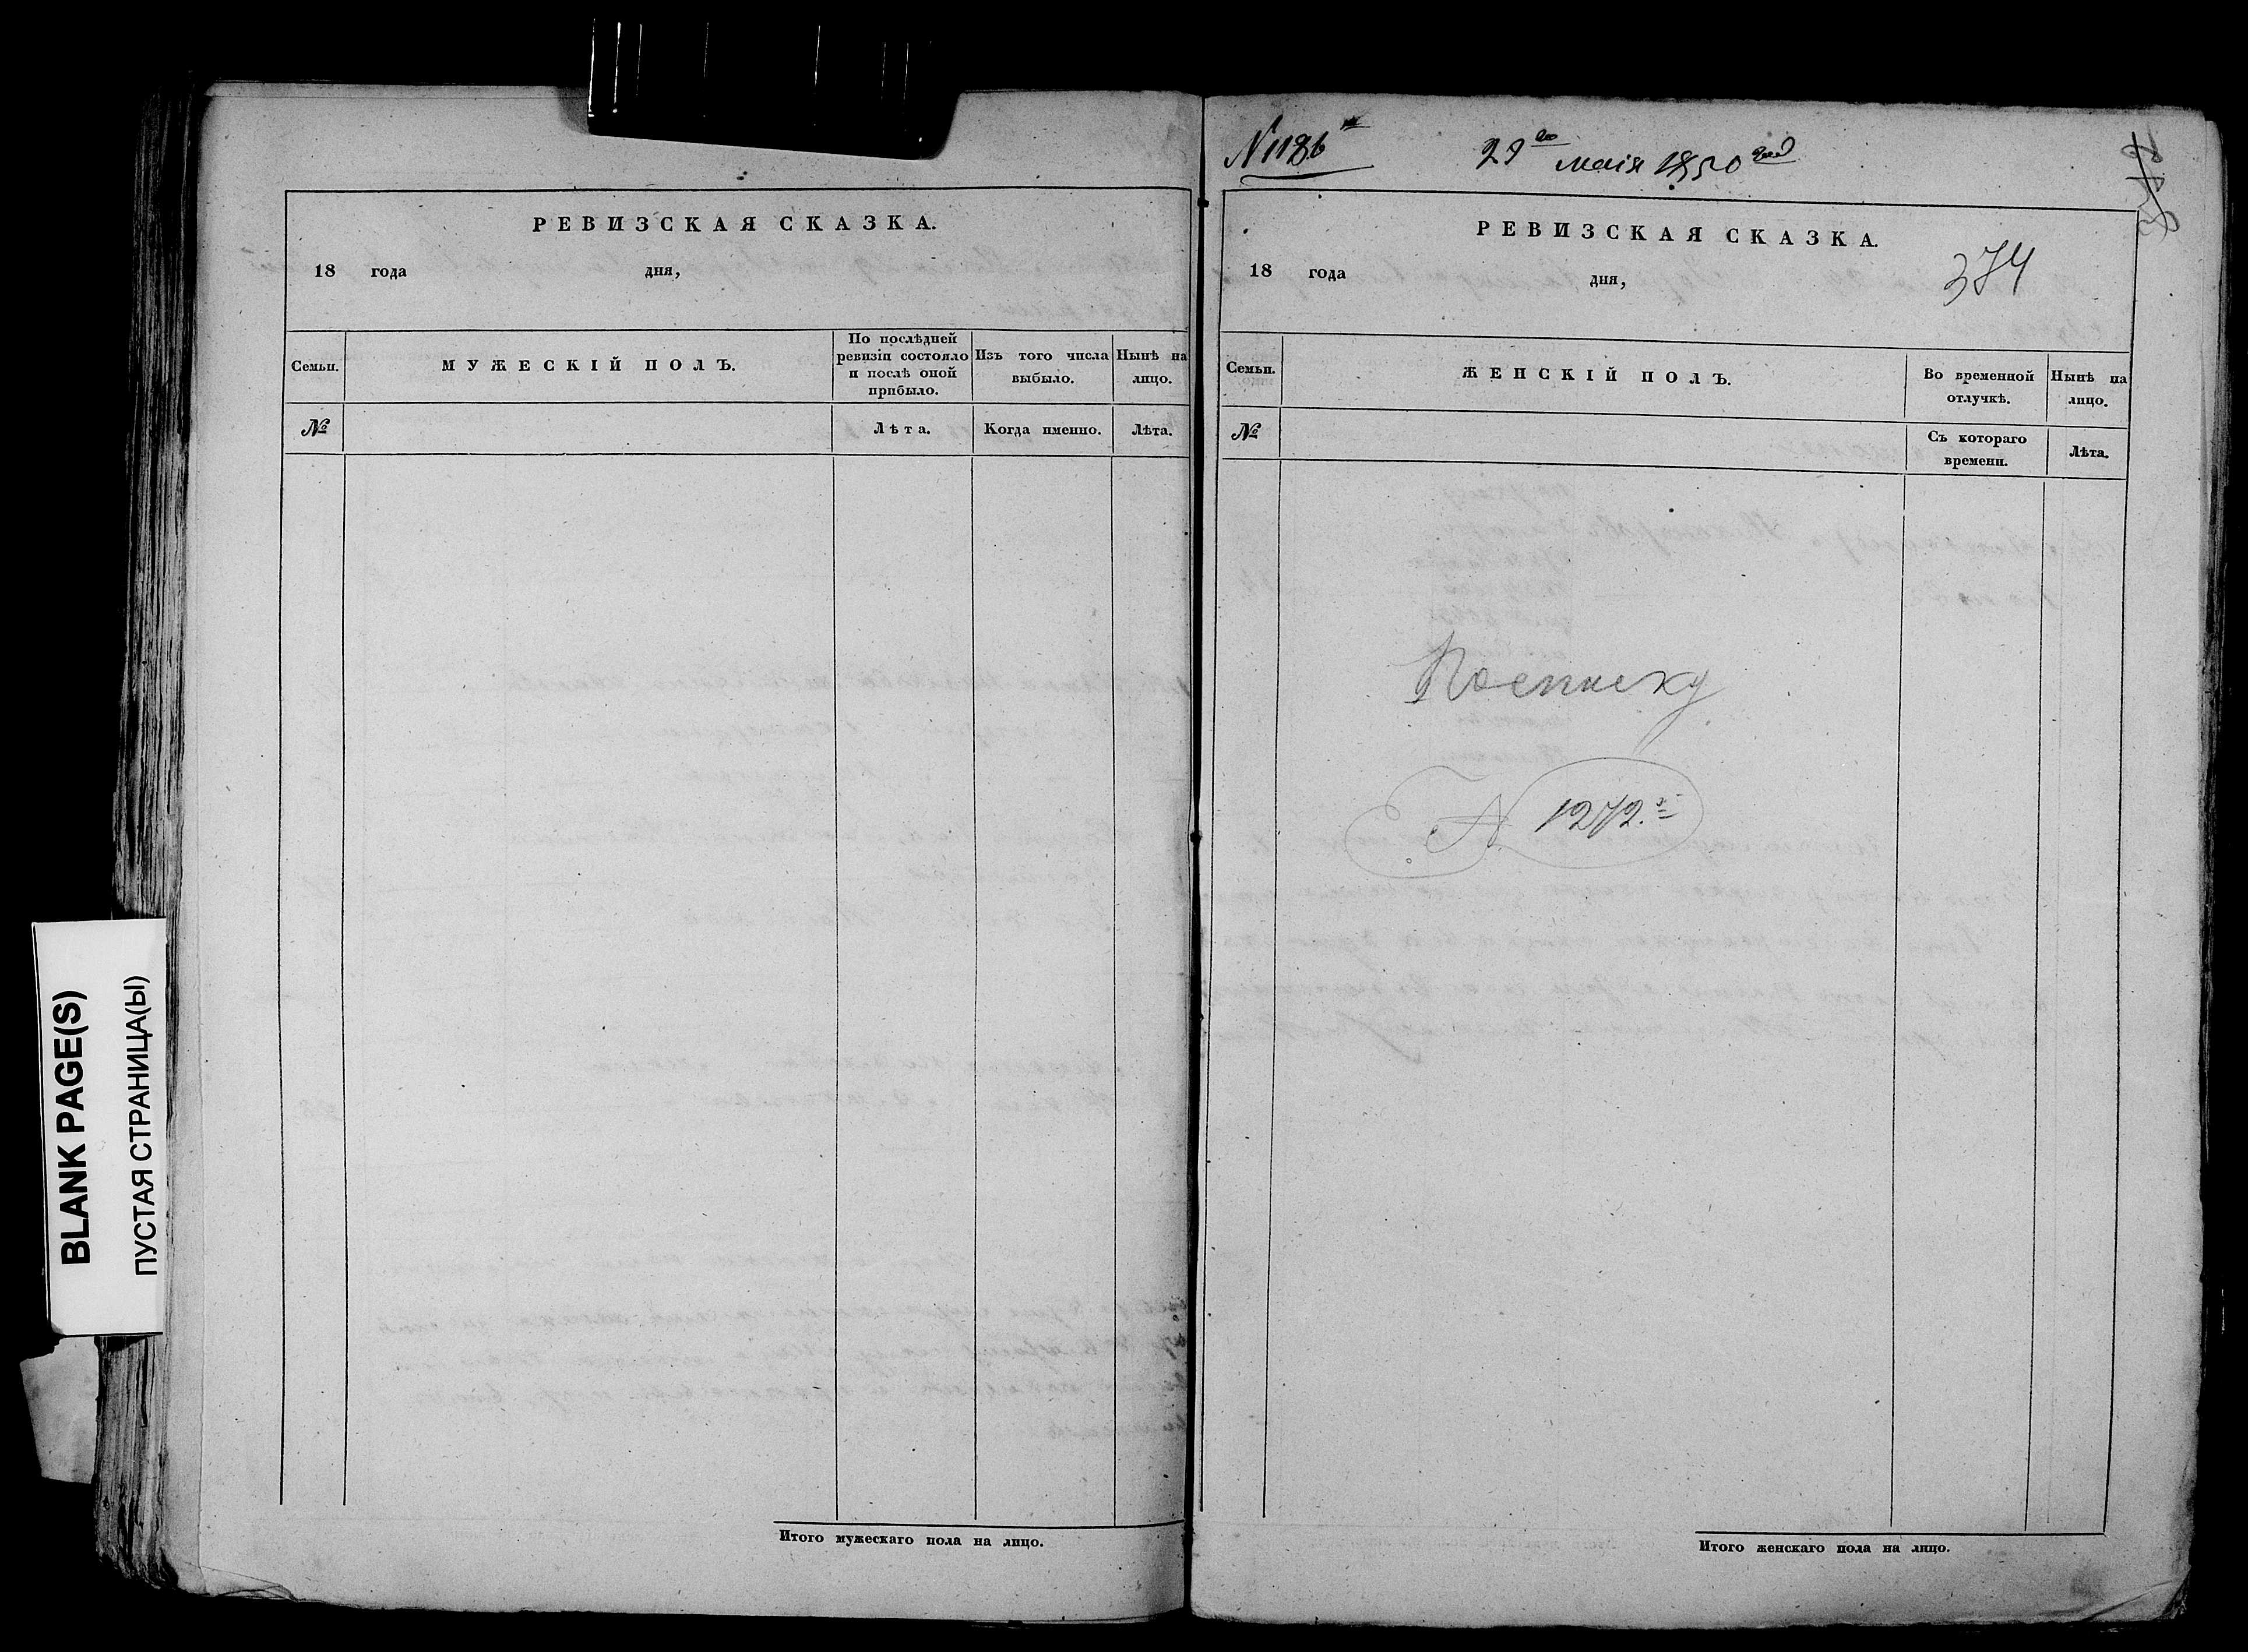 РЕВИЗСКАЯ СКАЗКА.
18 года дня,
Семьи.
МУЖЕСКІЙ ПОЛЪ.
По послѣдней ревизіи состояло и послѣ оной прибыло.
Изъ того числа выбыло.
Нынѣ на лицо.
№
Лѣта.
Когда именно.
Лѣта.
Итого мужескаго пола на лицо.
N 1186
29го маія 1850 год
РЕВИЗСКАЯ СКАЗКА.
18 года дня,
374
Семьи.
ЖЕНСКІЙ ПОЛЪ.
Во временной отлучкѣ.
Нынѣ на лицо.
№
Съ котораго времени.
Лѣта.
N 1272.
Итого женскаго пола на лицо.
BLANK PAGE(S)
ПУСТАЯ СТРАНИЦА(Ы)